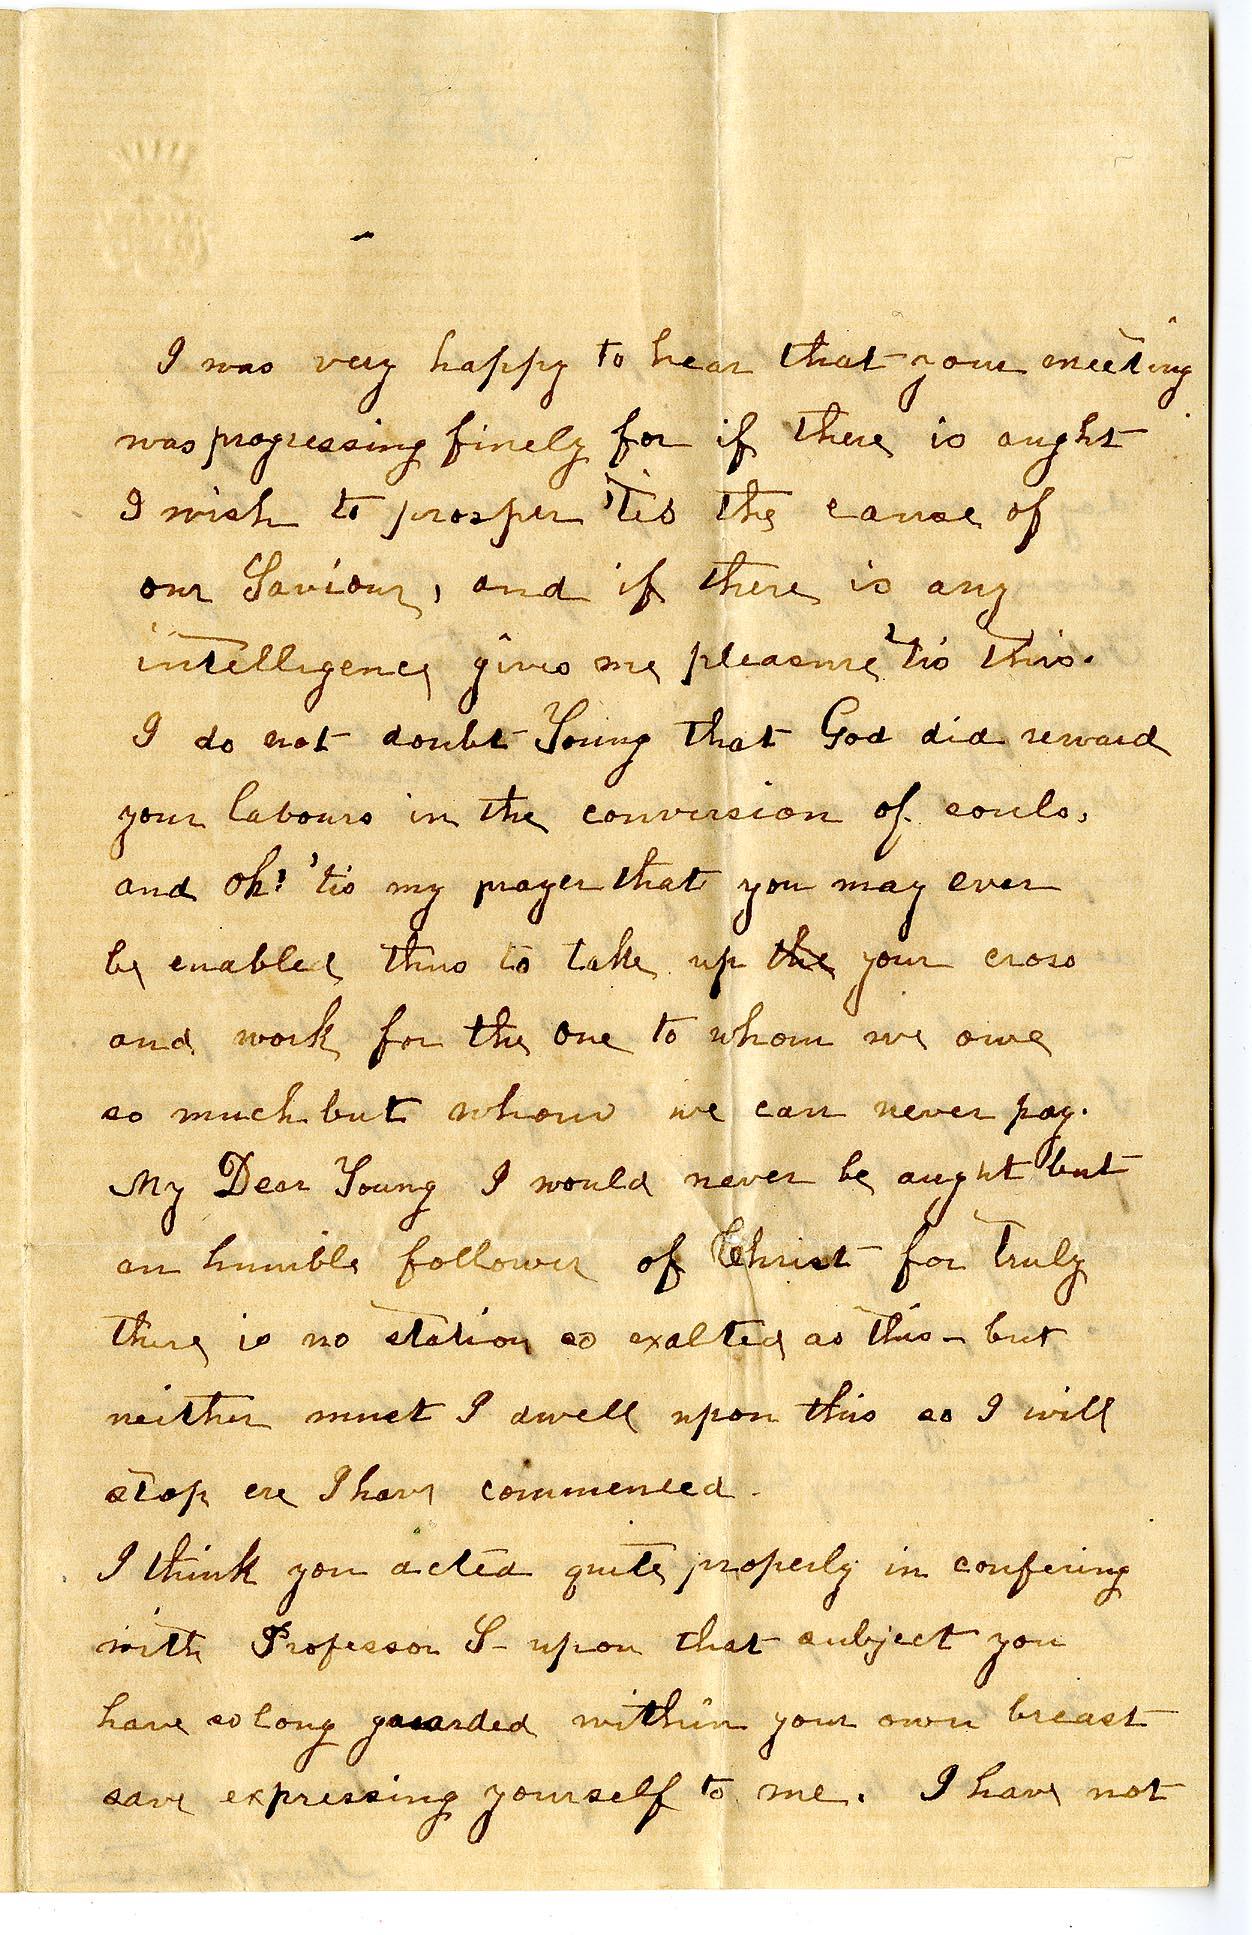 I was very happy to hear that your meeting
was progressing finely for if there is aught
I wish to prosper 'tis the cause of
our Saviour, and if there is any
intelligence gives me pleasure 'tis this.
I do not doubt Young that God did reward
your labours in the conversion of souls,
and oh! 'tis my prayer that you may ever
be enabled thus to take up the your cross
and work for the one to whom we owe
so much but whom we can never pay.
My Dear Young I would never be aught but
an humble follower of Christ for truly
there is no station so exalted as this - but
neither must I dwell upon this so I will
stop ere I have commenced.
I think you acted quite properly in confering
with Professor S - upon that subject you
have so long guarded within your own breast
save expressing yourself to me. I have not